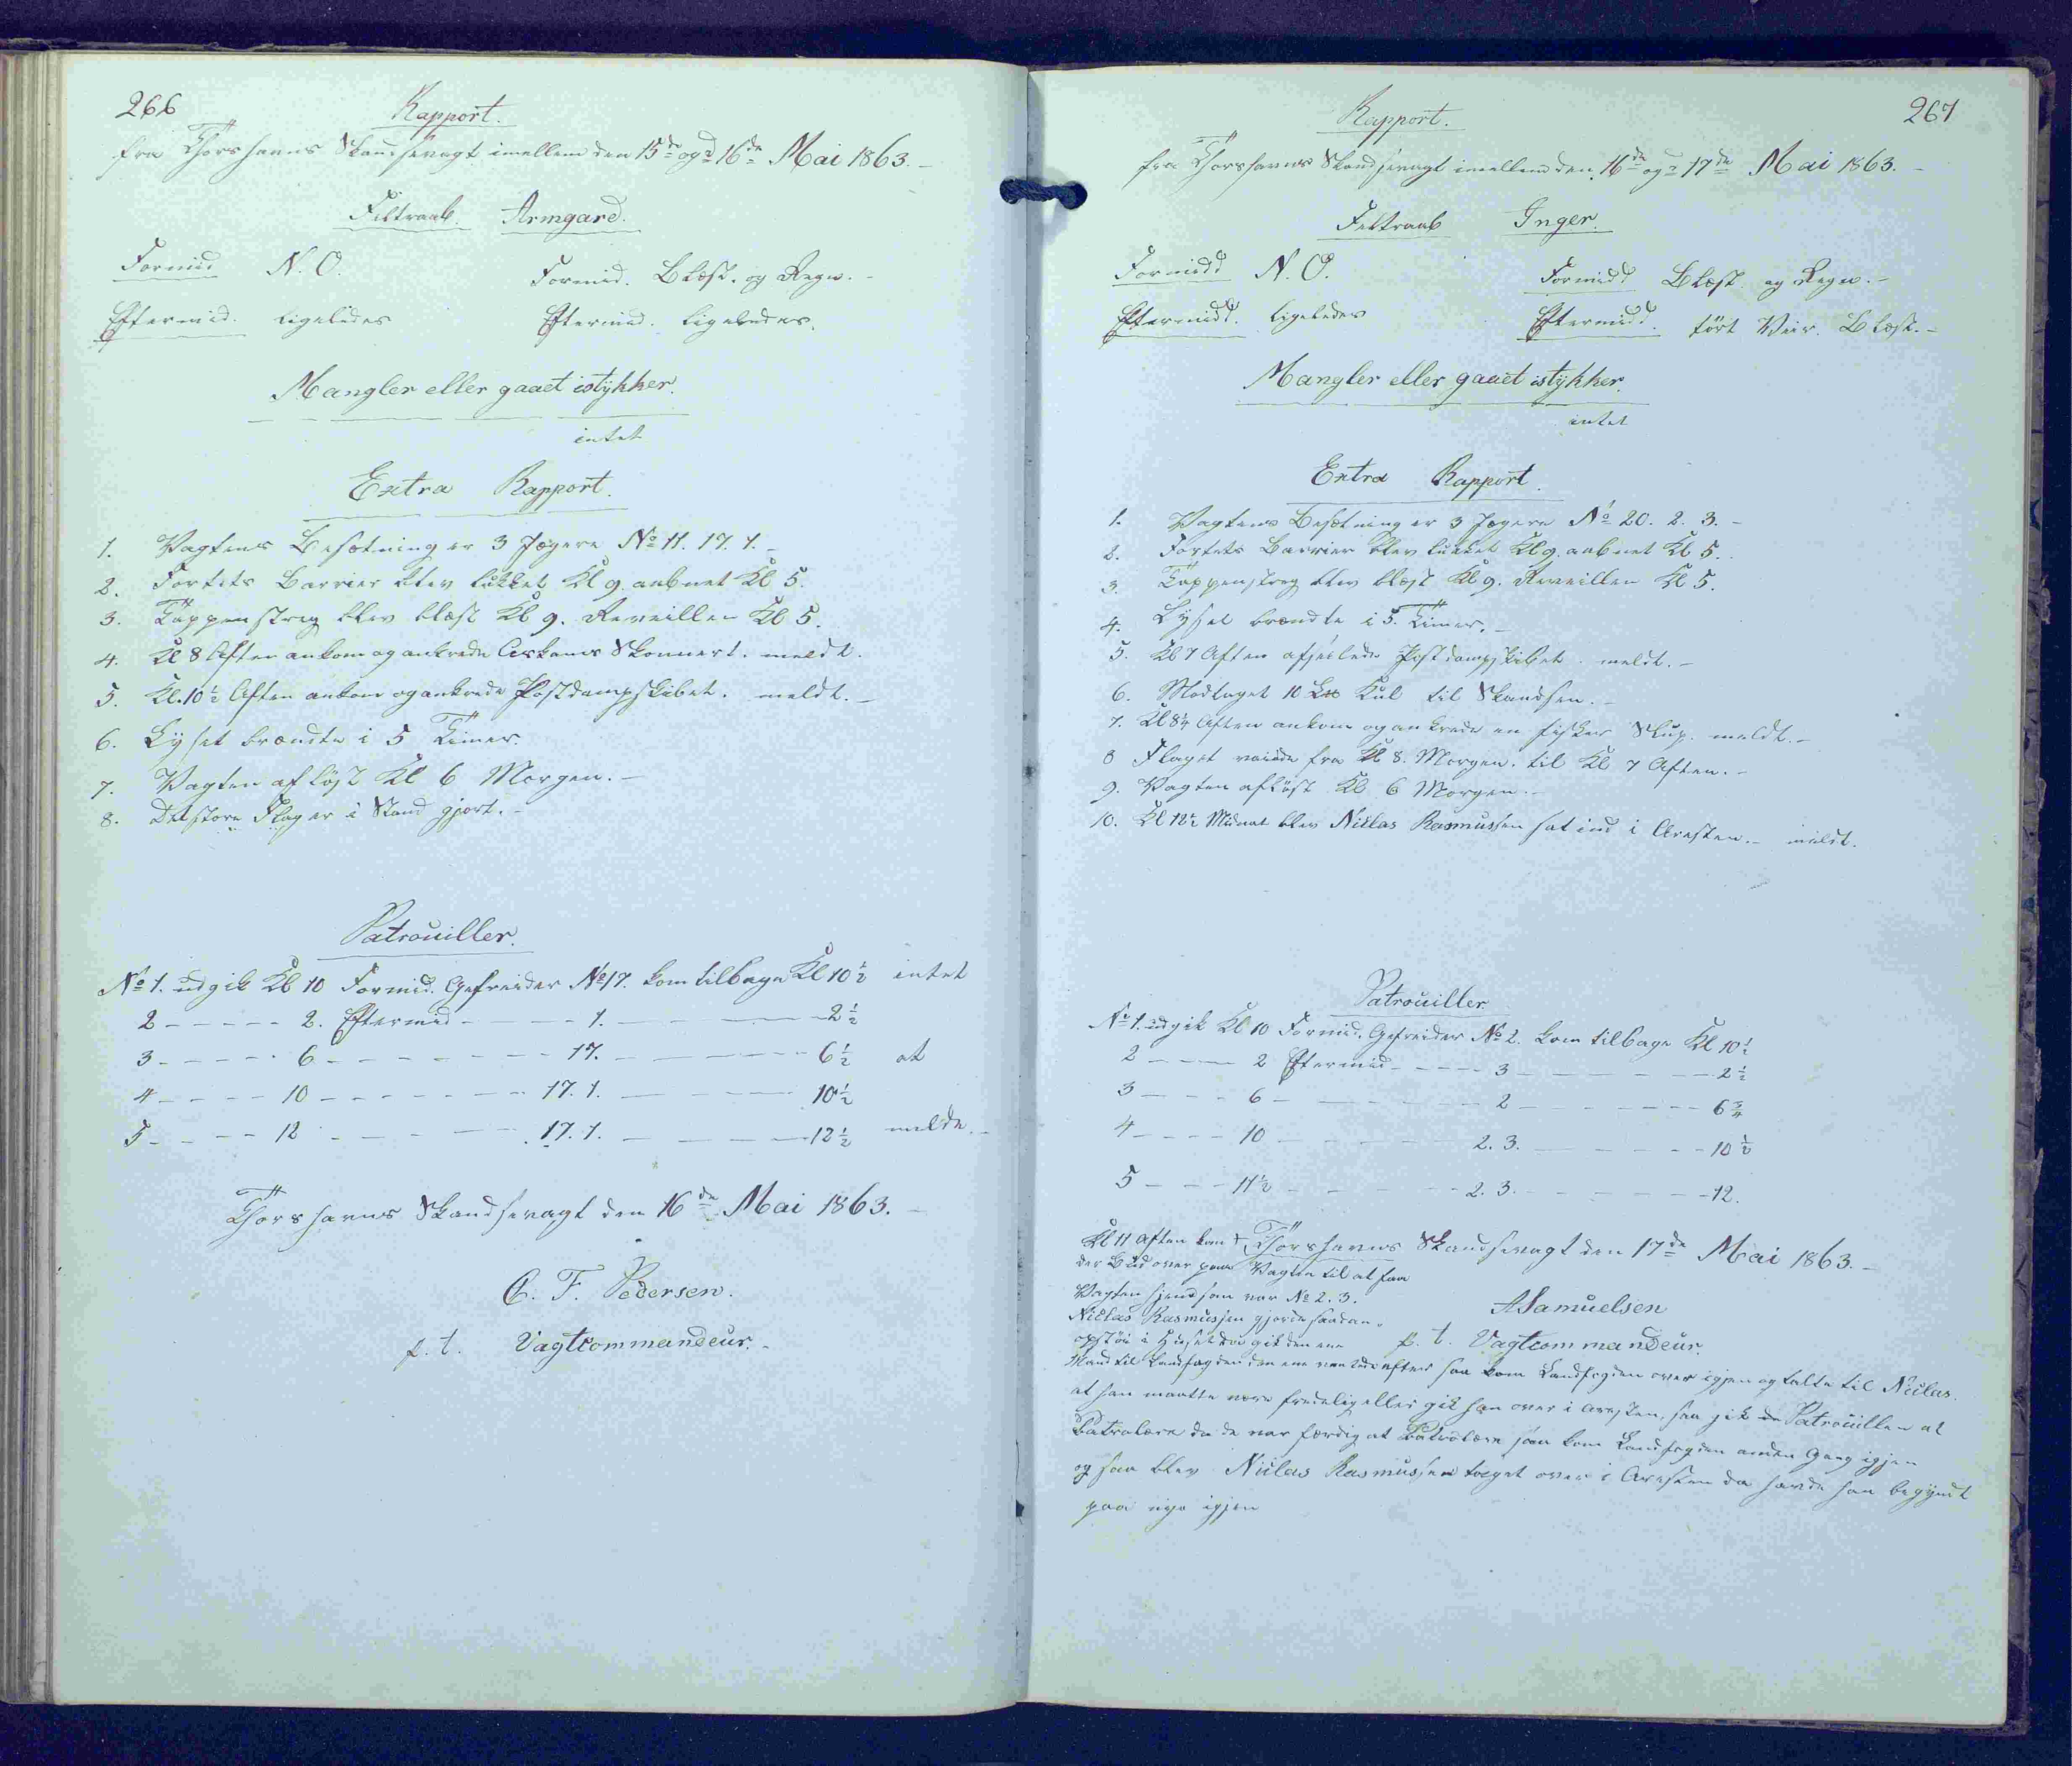 266
Rapport.
fra Thorshavns Skandsevagt imellem den 15de og 16de Mai 1863.
Feltraab. Armgard.
Formid N. O. Formid. Blæst. og Regn.
Eftermid. ligeledes Eftermid. ligeledes.
Mangler eller gaaet istykker.
intet
Extra Rapport.
1. Vagtens Besætning er 3 Jægere No 11. 17. 1.
2. Fortets Barrier blev lukket Kl 9. aabnet Kl 5.
3. Tappenstreg blev blæst Kl 9. Reveillen Kl 5.
4. Kl 8 Aften ankom og ankrede Askams Skonnert. meldt.
5. Kl. 10½ Aften ankom og ankrede Postdampskibet. meldt.
6. Lyset brændte i 5 Timer.
7. Vagten afløst Kl 6 Morgen.
8. Det store Flag er i Stand gjort.
Patrouiller.
No 1. udgik Kl 10 Formid. Gefreider No 17. kom tilbage Kl 10½ intet
2 - - - - - 2. Eftermid - - - 1. - - - 2½
3 - - - - - 6 - - - - - - - - 17. - - - - - - 6½ at
4 - - - - 10 - - - - - - - 17. 1. - - - - 10½
5 - - - - 12 - - - - - 17. 1. - - - - 12½ melde.
Thorshavns Skandsevagt den 16de Mai 1863.
C. F. Pedersen.
p. t. Vagtcommandeur.
267
Rapport.
fra Thorshavns Skandsevagt imellem den 16de og 17de Mai 1863.
Feltraab Inger.
Formidd N. O. Formidd Blæst. og Regn.
Eftermidd. ligeledes Eftermidd. tört Veir. Blæst.
Mangler eller gaaet istykker.
intet
Extra Rapport.
1. Vagtens Besætning er 3 Jægere No 20. 2. 3.
2. Fortets Barrier blev lukket Kl 9. aabnet Kl 5.
3. Tappenstreg blev blæst Kl 9. Reveillen Kl 5.
4. Lyset brændte i 5. Timer.
5. Kl 7 Aften afseilede Postdampskibet. meldt.
6. Modtaget 10 Kul til Skandsen.
7. Kl 8¼ Aften ankom og ankrede en fisker Slup. meldt.
8 Flaget vaiede fra Kl 8. Morgen. til Kl 7 Aften.
9. Vagten afløst Kl 6 Morgen.
10. Kl 12½ Midnat blev Niclas Rasmussen sat ind i Aresten. meldt.
Patrouiller
No 1. udgik Kl 10 Formid. Gefreider No 2. kom tilbage Kl 10½
2 - - - 2 Eftermid - - - - 3 - - - - - - 2½
3 - - - 6 - - - - - - 2 - - - - - - 6¾
4 - - - - 10 - - - - - 2. 3. - - - - - 10½
5 - - - 11½ - - - - - 2. 3. - - - - - - 12.
Thorshavns Skandsevagt den 17de Mai 1863.
A Samuelsen
p. t. Vagtcommandeur.
Kl 11 Aften kom +
der Bud over paa Vagten til at faa
Vagten hend som var No 2. 3.
Niclas Rasmussen gjorde saadan
opstöi i Huset da gik den ene
Mand til Landfogden den ene efter saa kom Landfogden over igjen og talte til Niclas.
at han maatte være fredelig eller gik han over i Aresten, saa gik de Patrouillen at
Patrolere da de var færdig at Patrolere saa kom Landfogden anden Gang igjen
og saa blev Niclas Rasmussen taget over i Aresten da havde han begyndt
paa nye igjen